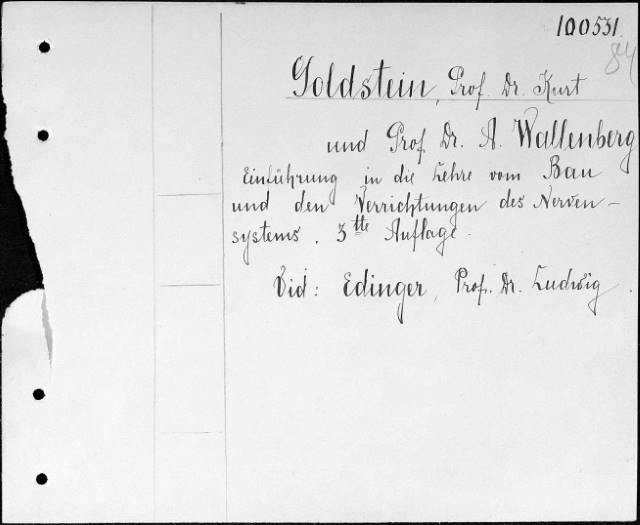 100531.
84
Goldstein, Prof. Dr. Kurt
und Prof. Dr. A. Wallenberg
Einführung in die Lehre vom Bau
und den Verrichtungen des Nerven-
systems. 3tte Auflage.
Vid: Edinger, Prof. Dr. Ludwig.